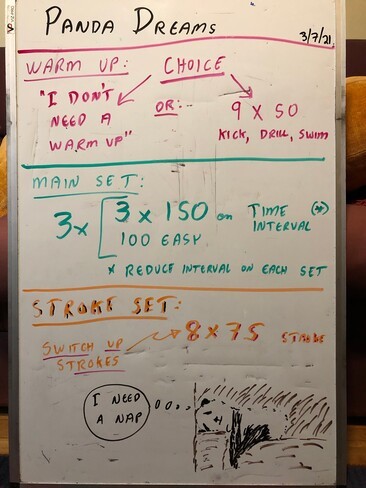 PANDA DREAMS
3/7/21
WARM UP: CHOICE
"I DON'T
NEED A
WARM UP"
OR:
9 X 50
KICK, DRILL, SWIM
MAIN SET:
3x 3 x 150 on TIME
INTERVAL
100 EASY
* REDUCE INTERVAL ON EACH SET
STROKE SET:
8 X 75 STROKE
SWITCH UP
STROKES
I NEED
A NAP